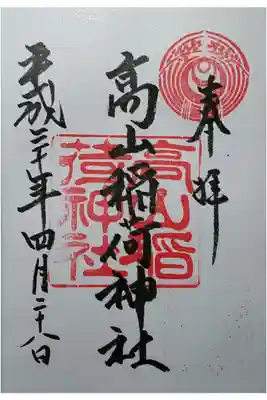 奉拝
高山稲荷神社
平成二十年四月二十八日
高山稲
荷神社